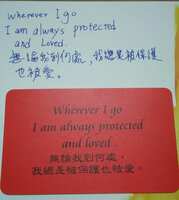 wherever I go
I am always protected
and Loved.
無論我到何處,我總是被保護
也被愛。
Wherever I go
I am always protected
and loved .
無論我到何處,
我總是被保護也被愛。